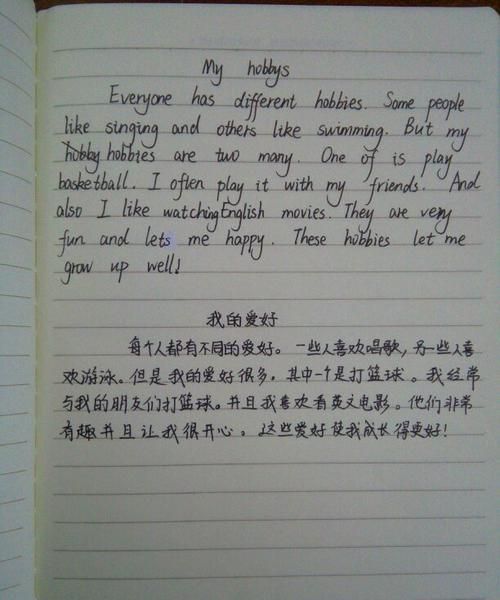 My hobbys
Everyone has different hobbies. Some people
like singing and others like swimming. But my
hobby hobbies are two many. One of is play
basketball. I often play it with my friends. And
also I like watching English movies. They are very
fun and lets me happy. These hobbies let me
grow up well!
我的爱好
每个人都有不同的爱好。一些人喜欢唱歌，另一些人喜
欢游泳。但是我的爱好很多，其中一个是打篮球。我经常
与我的朋友们打篮球。并且我喜欢看英文电影。他们非常
有趣并且让我很开心。这些爱好使我成长得更好！